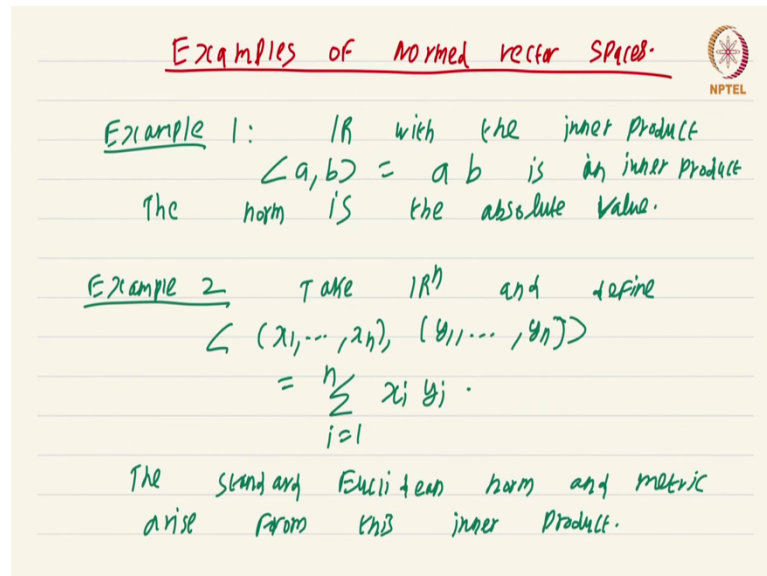 Examples of Normed vector spaces.
NPTEL
Example 1: ℝ with the inner product
<a,b> = a b is an inner product
The norm is the absolute value.
Example 2 Take ℝⁿ and define
< (x₁,..., xₙ), (y₁,..., yₙ)>
= n∑i=1 xᵢ yᵢ .
The standard Euclidean norm and metric
arise from this inner product.